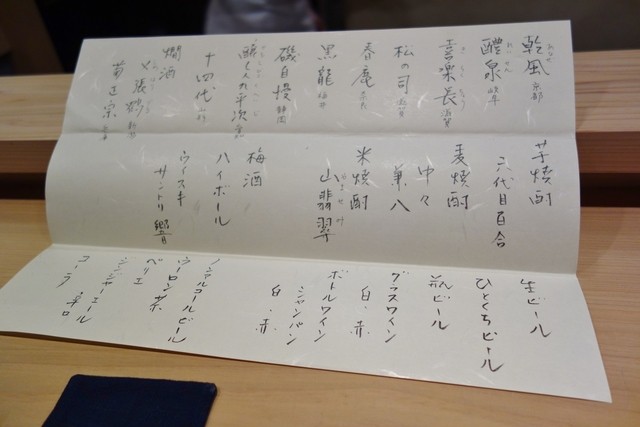 乾風 京都
醴泉 岐阜
喜楽長 滋賀
松の司 滋賀
春鹿 奈良
黒龍 福井
磯自慢 静岡
醸し人九平次
十四代 山形
燗酒
〆張鶴 新潟
菊正宗
芋焼酎
六代目百合
麦焼酎
中々
兼八
米焼酎
山翡翠
梅酒
ハイボール
ウイスキー
サントリー 響
生ビール
ひとくちビール
瓶ビール
グラスワイン
白・赤
ボトルワイン
シャンパン
白・赤
ノンアルコールビール
ウーロン茶
ペリエ
ジンジャーエール
コーラ 辛口